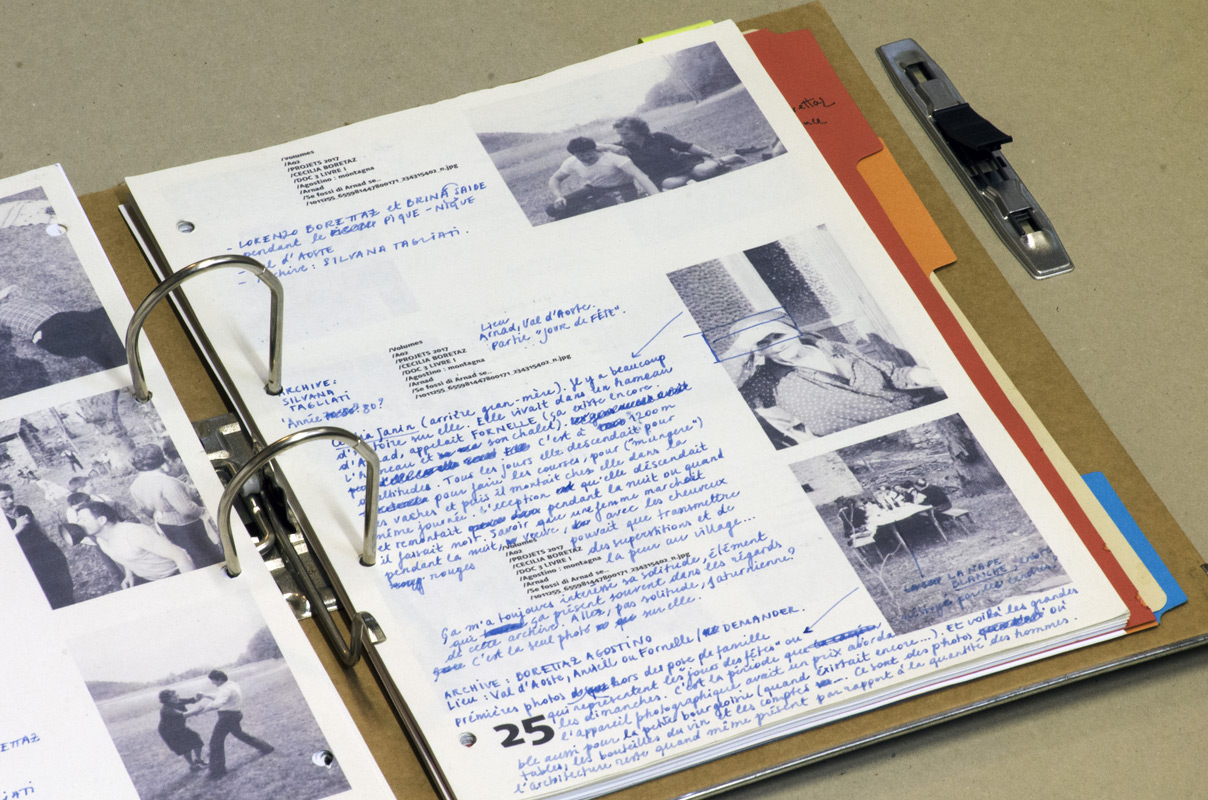 /Volumes
/A02
/PROJETS 2017
/CECILIA BORETAZ
/DOC 3 LIVRE I
/Agostino : montagna
/Arnad
/Se fossi di Arnad se...
/1011255_655981447800171_234315402_n.jpg
- LORENZO BORETTAZ et BRINA SAIDE
pendant le PIQUE-NIQUE
- Val d'AOSTE
- Archive : SILVANA TAGLIATI.
Lieu
Arnad, Val d'Aoste.
Partie "JOUR de FÊTE".
/Volumes
/A02
/PROJETS 2017
/CECILIA BORETAZ
/DOC 3 LIVRE I
/Agostino : montagna
/Arnad
/Se fossi di Arnad se...
/1011255_655981447800171_234315402_n.jpg
ARCHIVE :
SILVANA
TAGLIATI
Année 80?
Janin (arrière gran-mère). Il y a beaucoup
d'histoire sur elle. Elle vivait dans un hameau
d'Arnad, appelait FORNELLE (ça existe encore.
L'hameau et son chalet). C'est à 1200m
altitudes. Tous les jours elle descendait pour
pour faire les courses, pour ("mungere")
les vaches et puis il montait chez elle dans la
même journée. S'eception qu'elle descendait
et remontait pendant la nuit ou quand
il faisait noir. Savoir que une femme marchait
pendant la nuit, veuve, avec les cheveux
rouges pouvait que transmettre
des superstitions et de
la peur au village...
/Volumes
/A02
/PROJETS 2017
/CECILIA BORETAZ
/DOC 3 LIVRE I
/Agostino : montagna
/Arnad
/Se fossi di Arnad se...
/1011255_655981447800171_234315402_n.jpg
Ça m'a toujours interesé sa solitude, élément
qui ça présent souvent dans les régards
de cette archive. Aller, pas solitude, saturnienne?
C'est la seul photo sur elle.
ARCHIVE : BORETTAZ AGOSTINO
Lieu : Val d'Aosto, Arnad ou Fornelle / DEMANDER.
Premières photos hors des pose de famille
qui représentent les "jous des fêtes" ou
les dimanches. C'est la période que
l'appareil photographique avait un prix aborda
ble aussi pour la petite bourgeoisie (quand existait encore...). Et voilà les grandes
tables, les bouteilles du vin et les comptes. Ce sont des photos, où
l'architecture reste quand même présent par rapport à la quantité des hommes.
LA NAPE
BLANCHE,
25